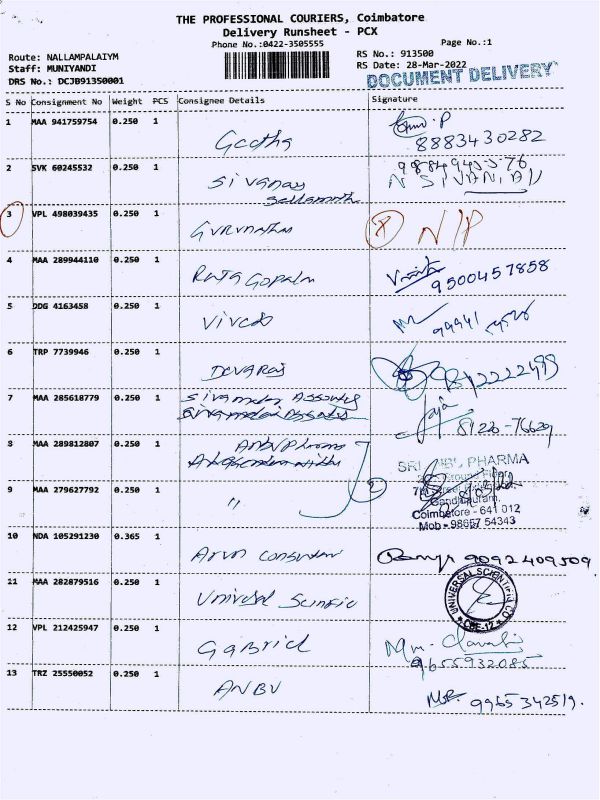 THE PROFESSIONAL COURIERS, Coimbatore
Delivery Runsheet - PCX
Phone No.:0422-3505555
Page No.:1
Route: NALLAMPALAIYM
RS No.: 913500
Staff: MUNIYANDI
RS Date: 28-Mar-2022
DRS No.: DCJB91350001
DOCUMENT DELIVERY
S No Consignment No Weight PCS Consignee Details Signature
1 MAA 941759754 0.250 1 Geetha
8883430282
2 SVK 60245532 0.250 1
N SIVANAN
3 VPL 498039435 0.250 1 Gurunathan N/P
4 MAA 289944110 0.250 1 Raja Gopalan
9500457858
5 DDG 4163458 0.250 1 Vivek
99941
6 TRP 7739946 0.250 1 Devaraj
7 MAA 285618779 0.250 1
81220-76629
8 MAA 289812807 0.250 1 Anbu Pharma
SRI ANBU PHARMA
Ground Floor,
9 MAA 279627792 0.250 1 〃
Gandhipuram,
Coimbatore - 641 012
Mob - 98657 54343
10 NDA 105291230 0.365 1 Arun Consultan
Ramya 9092409509
11 MAA 282879516 0.250 1 Universal Scientific
UNIVERSAL SCIENTIFIC CO
CBE-12
12 VPL 212425947 0.250 1 Gabriel
9655932085
13 TRZ 25550052 0.250 1 ANBU
9965342519.